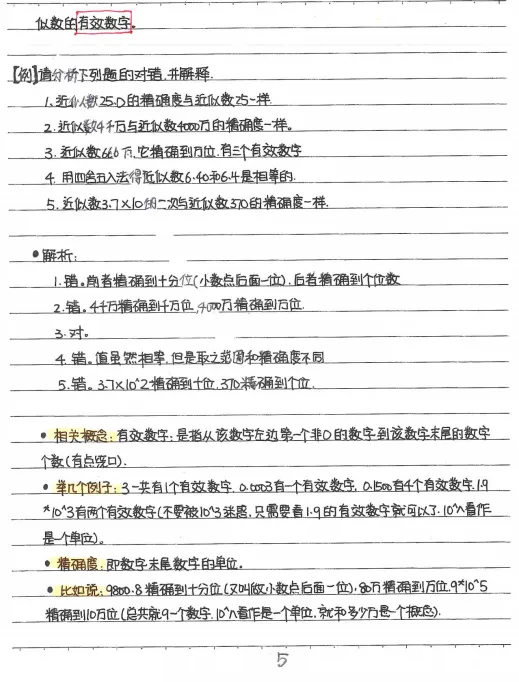 似数的有效数字。
【例】请分析下列题的对错,并解释.
1、近似数25.0的精确度与近似数25一样.
2.近似数4千万与近似数4000万的精确度一样。
3.近似数660万,它精确到万位.有三个有效数字
4.用四舍五入法得近似数6.40和6.4是相等的.
5.近似数3.7×10的二次与近似数370的精确度一样.
•解析:
1.错。前者精确到十分位(小数点后面一位),后者精确到个位数
2.错。4千万精确到千万位,4000万精确到万位.
3.对。
4.错。值虽然相等,但是取之范围和精确度不同
5.错。3.7×10^2精确到十位.370精确到个位.
•相关概念:有效数字:是指从该数字左边第一个非0的数字到该数字末尾的数字
个数(有点绕口).
•举几个例子:3一共有1个有效数字,0.0003有一个有效数字,0.1500有4个有效数字,1.9
*10^3有两个有效数字(不要被10^3迷惑,只需要看1.9的有效数字就可以了.10^n看作
是一个单位)。
•精确度:即数字末尾数字的单位。
•比如说:9800.8精确到十分位(又叫做小数点后面一位),80万精确到万位.9*10^5
精确到10万位(总共就9一个数字,10^n看作是一个单位,就和多少万是一个概念).
5